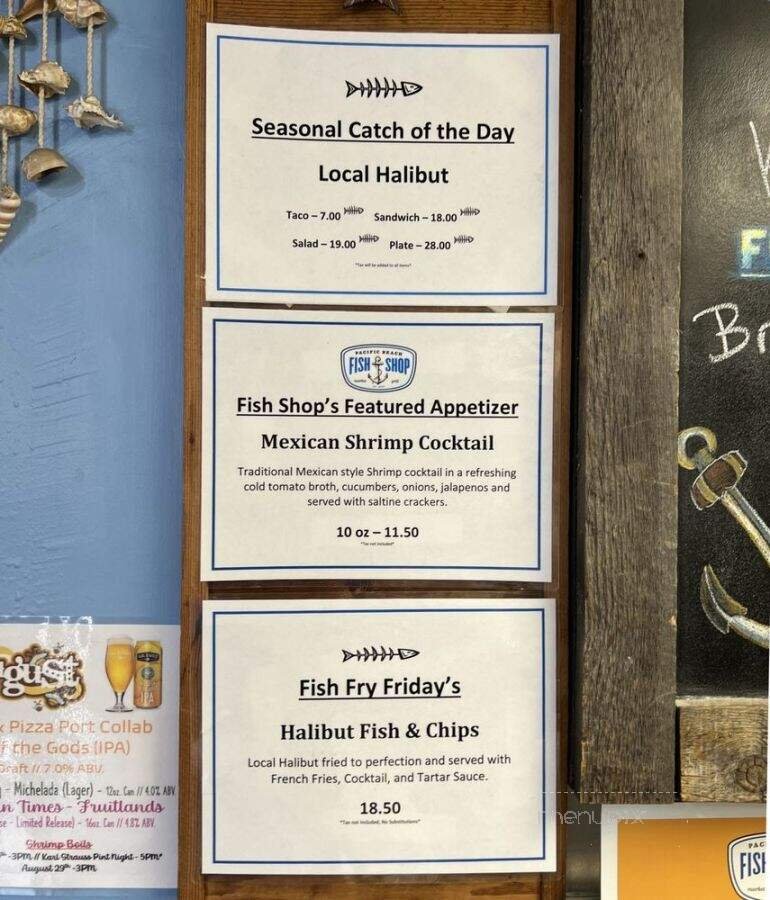 Seasonal Catch of the Day
Local Halibut
Taco – 7.00 Sandwich – 18.00
Salad – 19.00 Plate – 28.00
*Tax will be added to all items*
PACIFIC BEACH
FISH SHOP
market grill
Fish Shop's Featured Appetizer
Mexican Shrimp Cocktail
Traditional Mexican style Shrimp cocktail in a refreshing
cold tomato broth, cucumbers, onions, jalapenos and
served with saltine crackers.
10 oz – 11.50
*Tax not included*
Fish Fry Friday's
Halibut Fish & Chips
Local Halibut fried to perfection and served with
French Fries, Cocktail, and Tartar Sauce.
18.50
*Tax not included, No Substitutions*
gust
x Pizza Port Collab
f the Gods (IPA)
Draft // 7.0% ABV.
- Michelada (Lager) - 12oz. Can // 4.0% ABV
n Times - Fruitlands
se - Limited Release) - 16oz. Can // 4.8% ABV.
Shrimp Boils
-3PM // Karl Strauss Pint Night - 5PM*
August 29th -3PM
IPA
F
Br
PAC
FISH
market
menupix